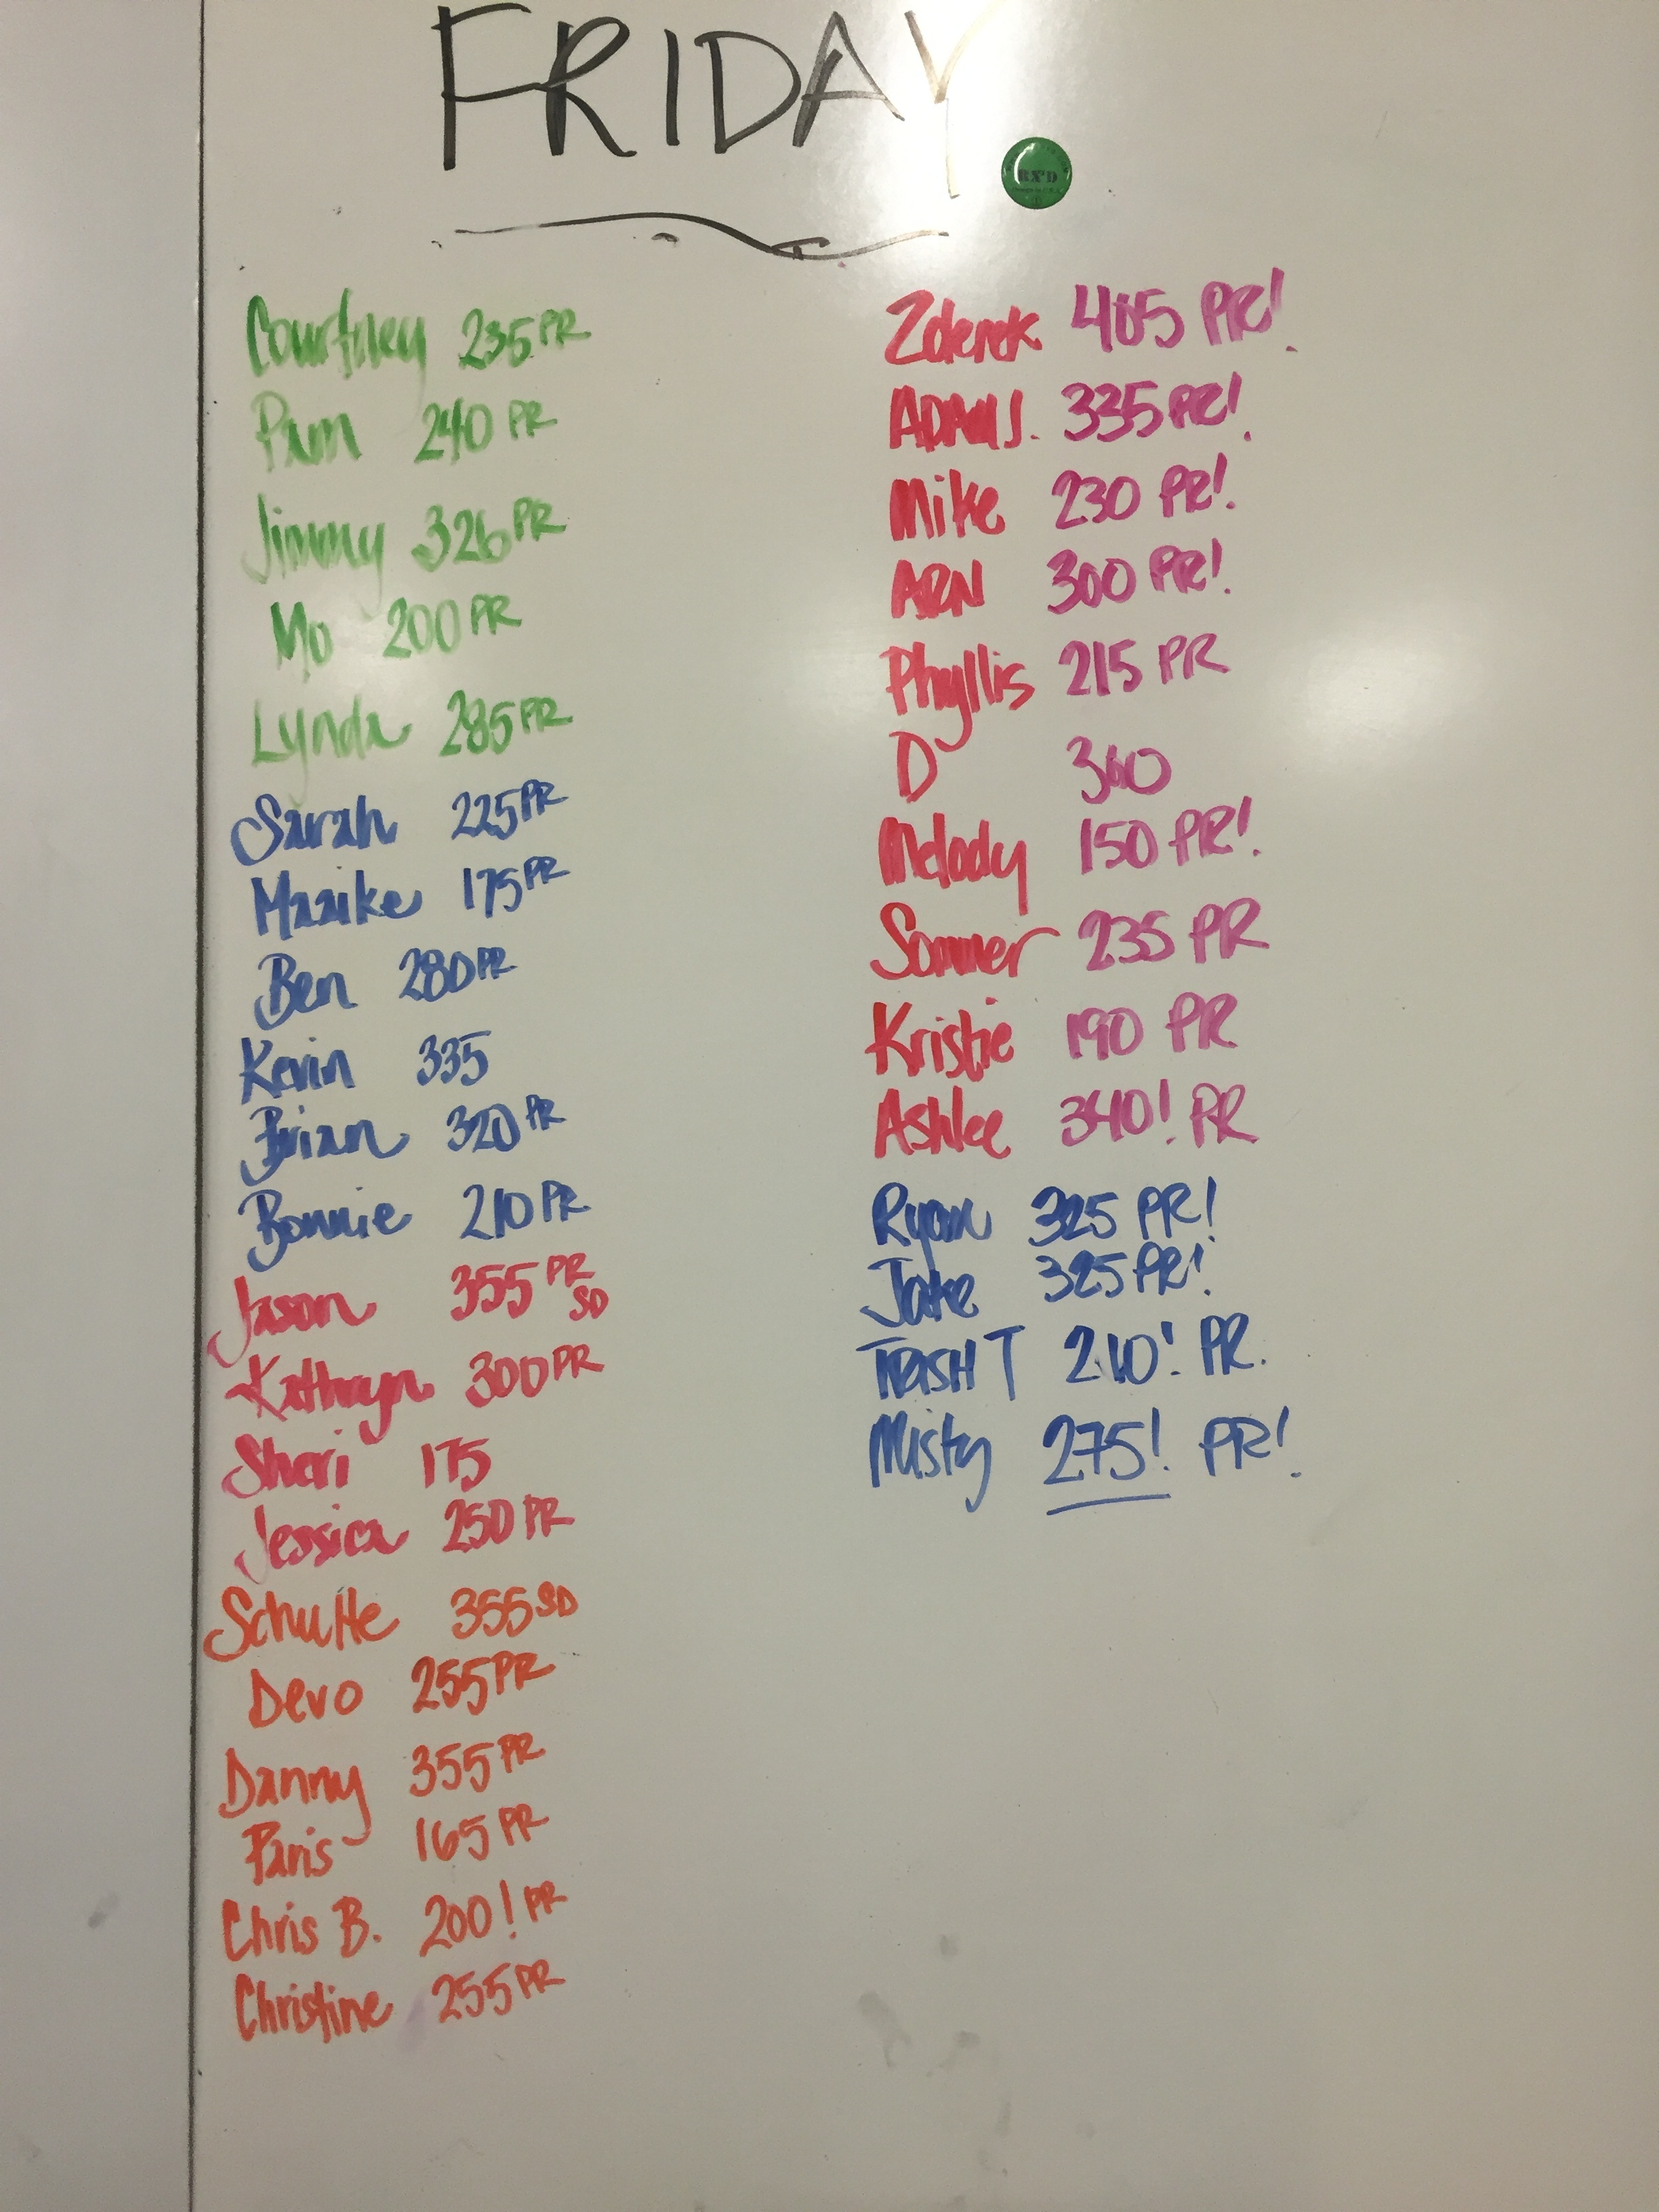 FRIDAY
RX'D
Courtney 235 PR
Pam 240 PR
Jimmy 326 PR
Mo 200 PR
Lynda 285 PR
Sarah 225 PR
Maaike 175 PR
Ben 280 PR
Kevin 335
Brian 320 PR
Bonnie 210 PR
Jason 355 PR SD
Kathryn 300 PR
Sheri 175
Jessica 250 PR
Schulte 355 SD
Devo 255 PR
Danny 355 PR
Paris 165 PR
Chris B. 200! PR
Christine 255 PR
Zderek 405 PR!
ADAM J. 335 PR!
Mike 230 PR!
ARN 300 PR!
Phyllis 215 PR
D 360
Melody 150 PR!
Sommer 235 PR
Kristie 190 PR
Ashlee 340! PR
Ryan 325 PR!
Jake 325 PR!
TRISH T 210! PR.
Misty 275! PR!